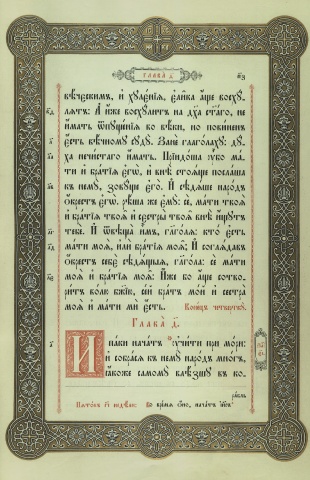 ГЛАВА̀ д҃.
вѣ́ческимъ, и҆ хꙋлє́нїѧ, є҆ли̑ка а҆́ще восхꙋ́-
лѧтъ: А҆ и҆́же восхꙋ́литъ на дх҃а ст҃а́го, не
и҆́мать ѿпꙋще́нїѧ во вѣ́ки, но пови́ненъ
є҆́сть вѣ́чномꙋ сꙋдꙋ̀. Занѐ глаго́лахꙋ: дꙋ́-
ха нечи́стаго и҆́мать. Прїидо́ша ᲂу҆̀бо ма́-
ти и҆ бра́тїѧ є҆гѡ̀, и҆ внѣ̀ стоѧ́ще посла́ша
къ немꙋ̀, зовꙋ́ще є҆го̀. И҆ сѣдѧ́ше наро́дъ
ѡ҆́крестъ є҆гѡ̀. рѣ́ша же є҆мꙋ̀: сѐ, ма́ти твоѧ̀
и҆ бра́тїѧ твоѧ̑ и҆ сєстры̀ твоѧ̑ внѣ̀ и҆́щꙋтъ
тебѐ. И҆ ѿвѣща̀ и҆̀мъ, гл҃голѧ: кто̀ є҆́сть
ма́ти моѧ̀, и҆лѝ бра́тїѧ моѧ̑; И҆ соглѧ́давъ
ѡ҆́крестъ себє̀ сѣдѧ́щыѧ, гл҃гола: сѐ ма́ти
моѧ̀ и҆ бра́тїѧ моѧ̑: И҆́же бо а҆́ще сотво-
ри́тъ во́лю бж҃їю, се́й бра́тъ мо́й и҆ сестра̀
моѧ̀ и҆ ма́ти мѝ є҆́сть. Коне́цъ четверткꙋ̀.
ГЛАВА̀ д҃.
И҆ па́ки нача́тъ ᲂу҆чи́ти при мо́ри:
и҆ собра́сѧ къ немꙋ̀ наро́дъ мно́гъ,
ꙗ҆́коже самомꙋ̀ влѣ́зшꙋ въ ко-
ра́бль
Пѧто́къ г҃і недѣ́ли: Во вре́мѧ ѻ҆́но, нача́тъ і҆и҃съ